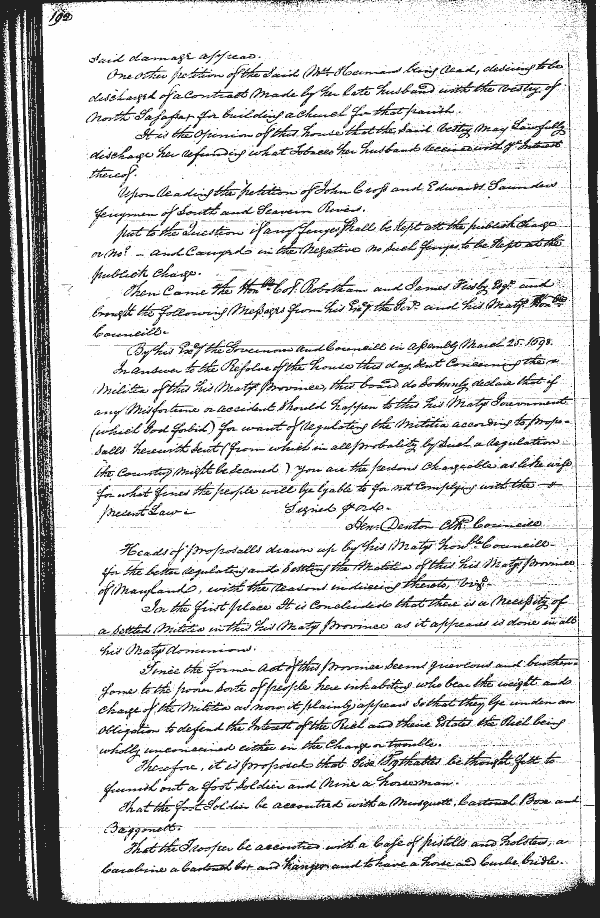 192
said damage appear.
One other petition of the said Mrs Hemans being read, desiring to be
discharged of a Contract Made by her late husband with the vestry of
North Sassafrax for building a church for that parish.
It is the Opinion of this house that the said vestry May Lawfully
discharge her refunding what Tobacco her husband received with ye Interest
thereof.
Upon reading the petition of John Cross and Edward Saunders
ferrymen of South and Seavern Rivers.
put to the Question if any ferrys shall be kept att the publick Charge
or no? – and Carryed in the Negative no Such ferrys to be kept at the
publick Charge.
Then Came the Honble Col. Robotham and James Esqr and
brought the following Messages from his Exy the Govr and his Matys Honble
Councill.
By his Exy the Governour and Councill in Assembly March 25. 1698.
In answer to the Resolve of the house this day sent Concerning the
Militia of this his Matys Province, this board do Solemnly declare that if
any Misfortune or accident Should happen to this his Matys Government
(which God forbid) for want of Regulating the Militia according to propo-
salls herewith sent (from which in all probality by Such a Regulation
the Country might be secured) you are the persons Chargeable as likewise
for what fines the people will be lyable to for not Complying with the
present Law
Signed p ordr
Hen: Denton Clk Councill
Heads of proposalls drawn up by his Matys honble Councill
for the better regulating and settling the Militia of this his Matys Province
of Maryland, with the reasons inducing thereto, vizt.
In the first place It is Concluded that there is a Necessity of
a settled Militia in this his Matys Province as it appeares is done in all
his Matys dominions.
Since the former Act of this Province Seems grievous and burthen-
some to the poorer Sorte of people here inhabiting who bear the weight and
Charge of the Militia as now it plainly appears So that they lye under an
Obligation to defend the Interest of the Rich and theire Estates the Rich being
wholly unconcerned either in the Charge or trouble.
Therefore, it is proposed that Six Tythables be thought fitt to
furnish out a foot Soldier and Nine a horseman.
That the foot Soldier be accoutred with a Musquett, Cartouch Box and
Baggonett.
That the Trooper be accoutred with a Case of pistolls and holsters, a
Carabine a Cartouch box and hanger and to have a horse and Curbe bridle.